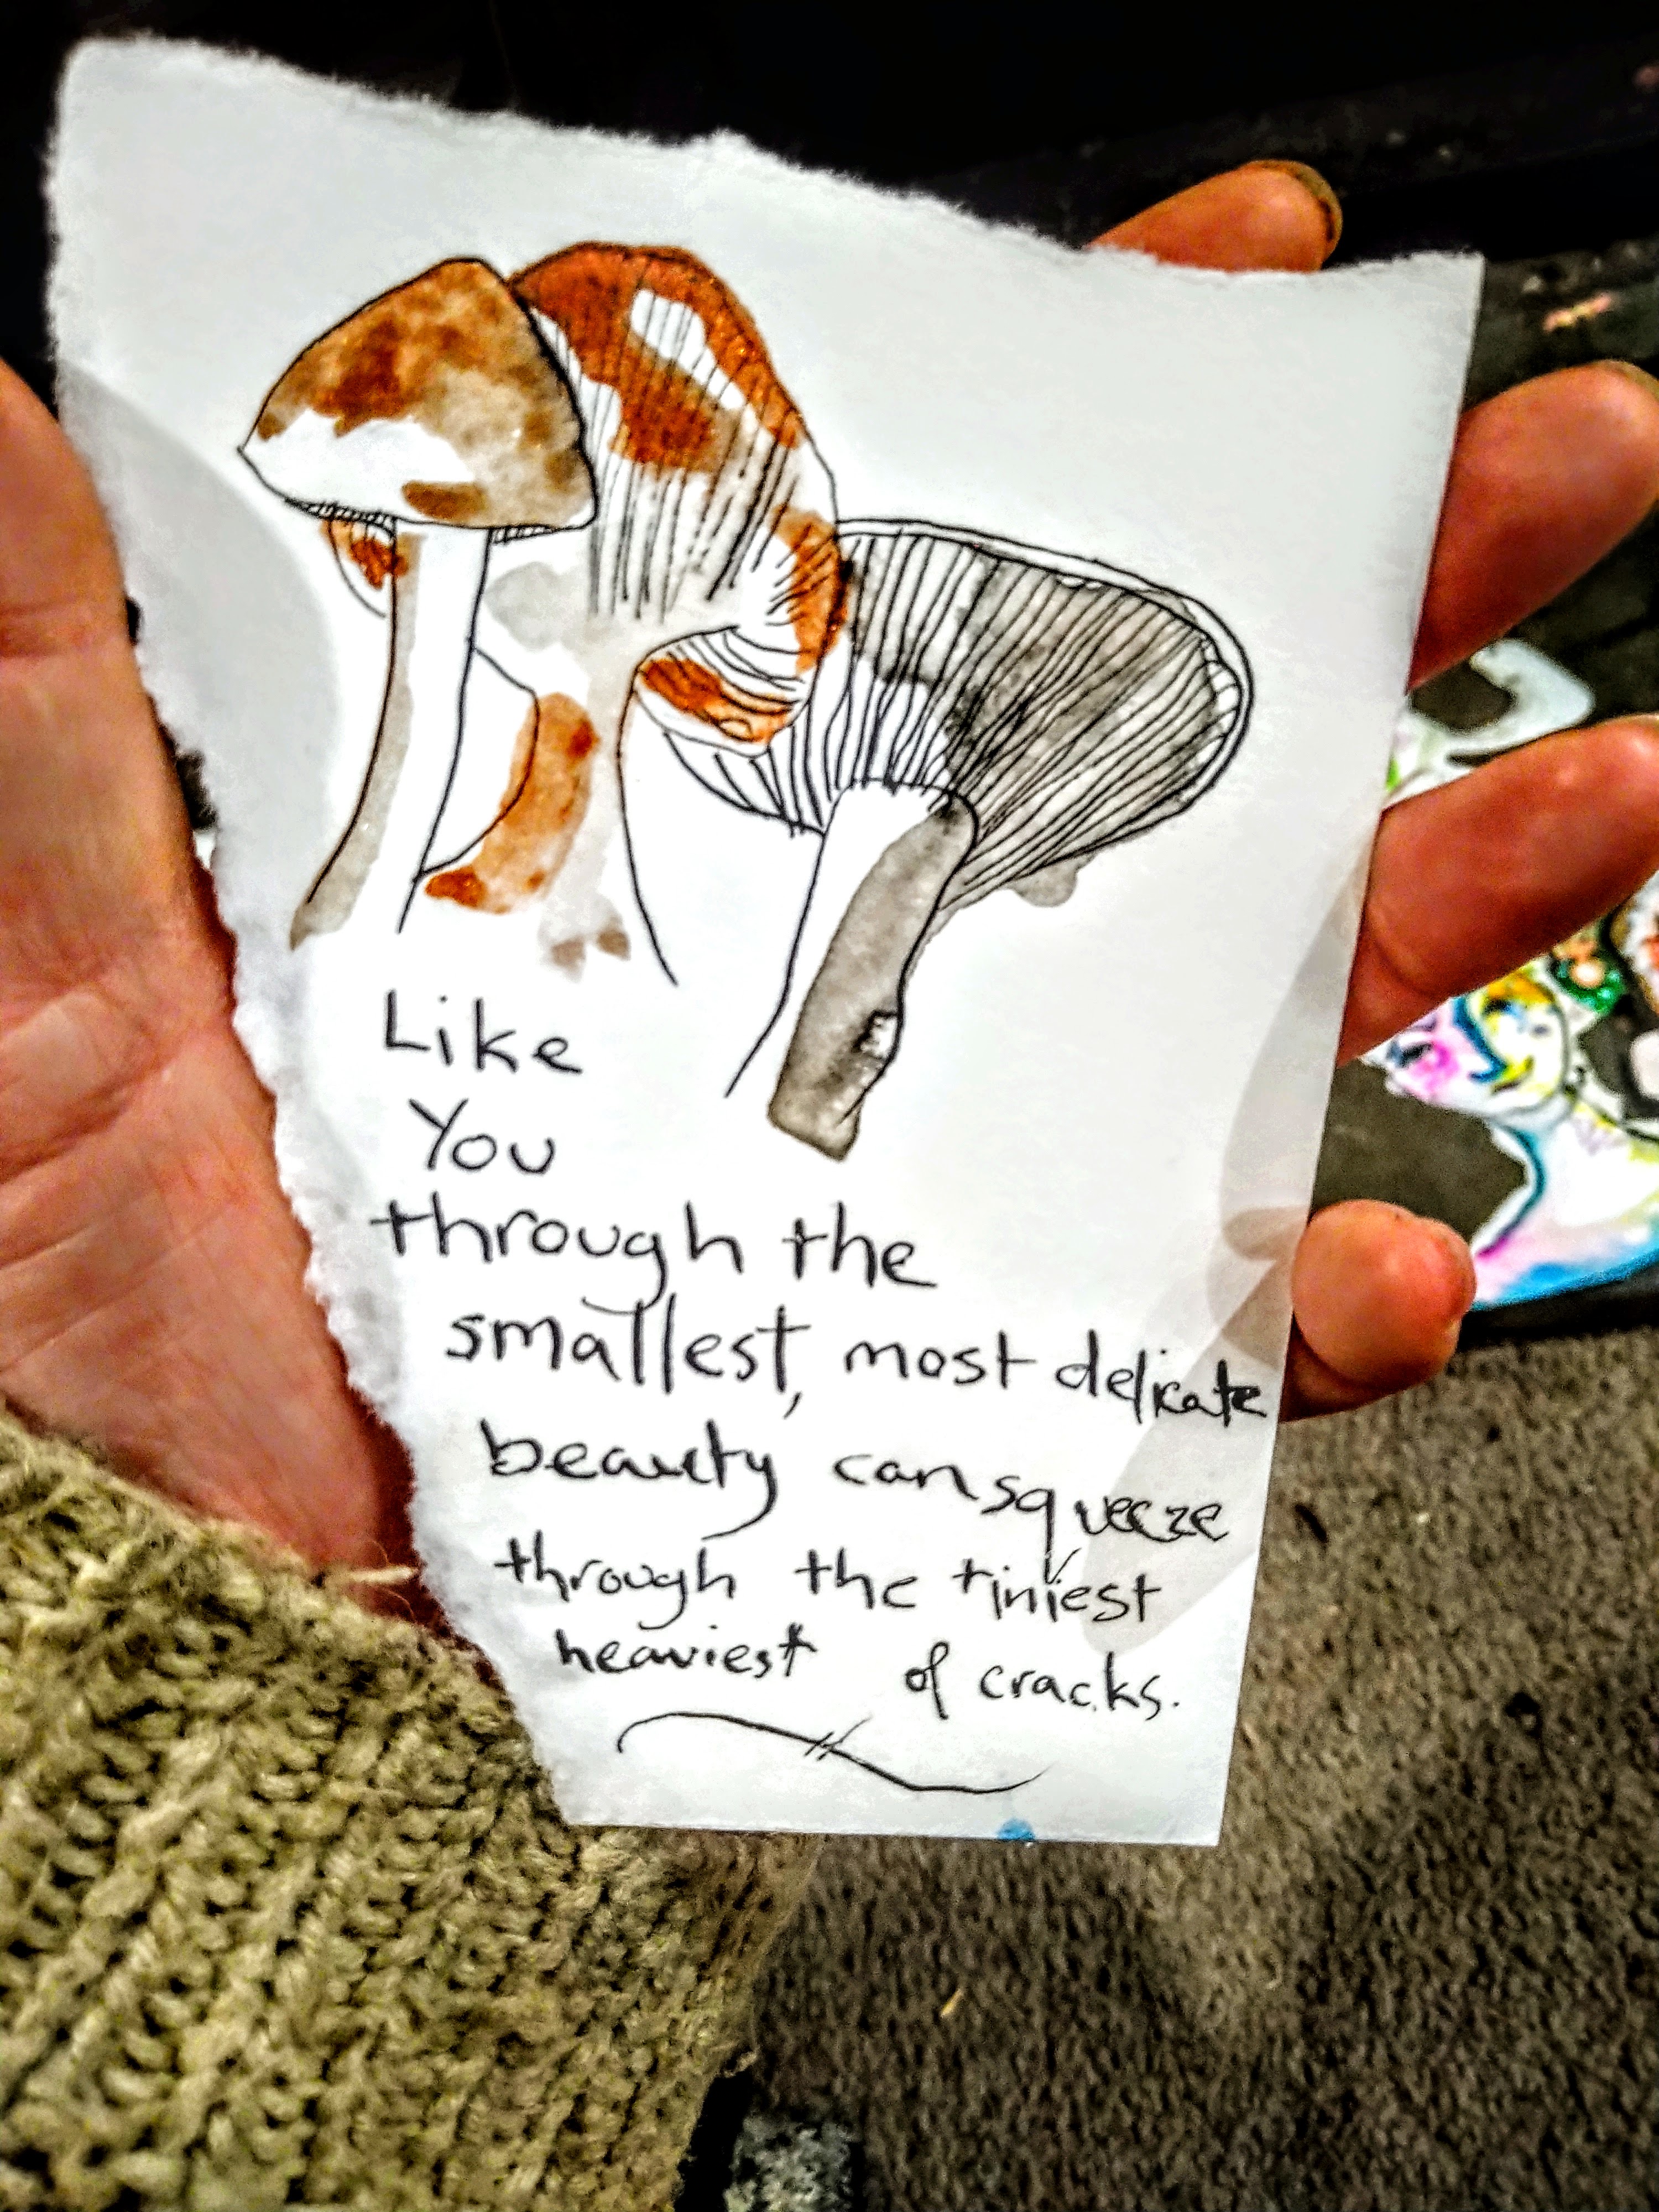 Like
You
through the
smallest, most delicate
beauty can squeeze
through the tiniest
heaviest of cracks.